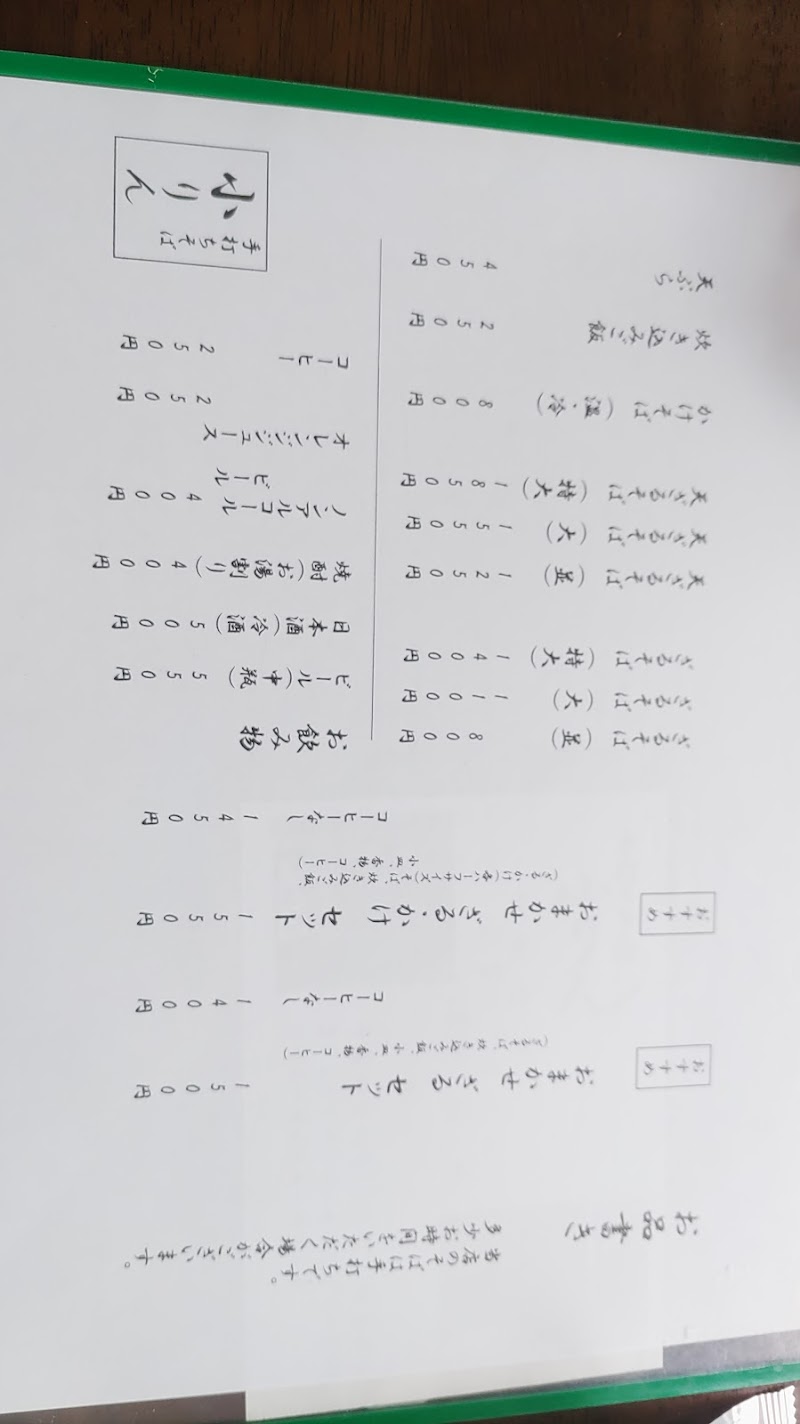 お品書き
当店のそばは手打ちです。
多少お時間をいただく場合がございます。
おすすめ
おまかせ ざる セット 1500円
(ざるそば、炊き込みご飯、小皿、香物、コーヒー)
コーヒーなし 1400円
おすすめ
おまかせ ざる・かけ セット 1550円
(ざる・かけ(各ハーフサイズ)そば、炊き込みご飯、
小皿、香物、コーヒー)
コーヒーなし 1450円
ざるそば (並) 800円
ざるそば (大) 1100円
ざるそば (特大) 1400円
天ざるそば (並) 1250円
天ざるそば (大) 1550円
天ざるそば (特大) 1850円
かけそば (温・冷) 800円
炊き込みご飯 250円
天ぷら 450円
お飲み物
ビール(中瓶) 550円
日本酒(冷酒) 500円
焼酎(お湯割り) 400円
ノンアルコール
ビール 400円
オレンジジュース
250円
コーヒー 250円
手打ちそば
小りん